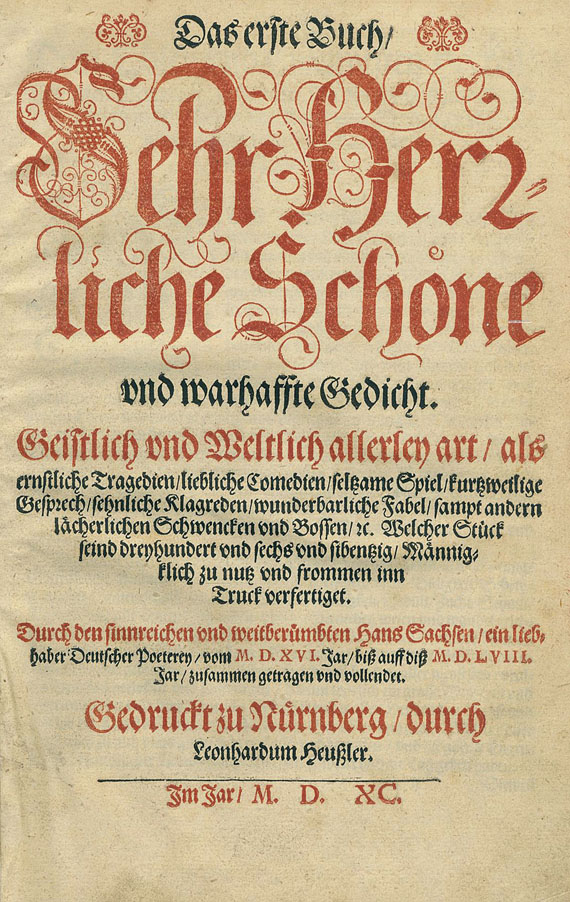 Das erste Buch/
Sehr Herz⸗
liche Schöne
vnd warhaffte Gedicht.
Geistlich vnd Weltlich allerley art / als
ernstliche Tragedien/liebliche Comedien/seltzame Spiel/kurtzweilige
Gesprech/sehnliche Klagreden/wunderbarliche Fabel/sampt andern
lächerlichen Schwencken vnd Bossen/ ꝛc. Welcher Stück
seind dreyhundert vnd sechs vnd sibentzig/ Männig⸗
klich zu nutz vnd frommen inn
Truck verfertiget.
Durch den sinnreichen vnd weitberümbten Hans Sachsen / ein lieb⸗
haber Deutscher Poeterey / vom M. D. XVI. Jar/ biß auff diß M. D. LVIII.
Jar / zusammen getragen vnd vollendet.
Gedruckt zu Nürnberg / durch
Leonhardum Heußler.
Im Jar / M. D. XC.